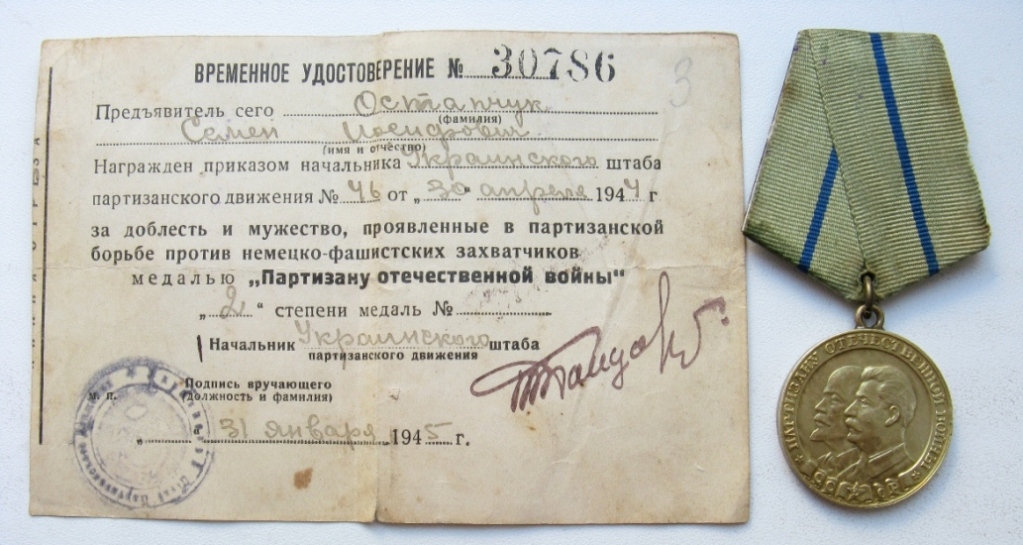 ВРЕМЕННОЕ УДОСТОВЕРЕНИЕ № 30786
3
Предъявитель сего Остапчук
(фамилия)
Семен Иосифович
(имя и отчество)
Награжден приказом начальника Украинского штаба
партизанского движения № 46 от „30" апреля 1944 г
за доблесть и мужество, проявленные в партизанской
борьбе против немецко-фашистских захватчиков
медалью „Партизану отечественной войны"
„2" степени медаль №
Начальник Украинского штаба
партизанского движения
Подпись вручающего
м. п. (должность и фамилия)
„31 января 1945 г.
ПАРТИЗАНУ ОТЕЧЕСТВЕННОЙ ВОЙНЫ
СССР